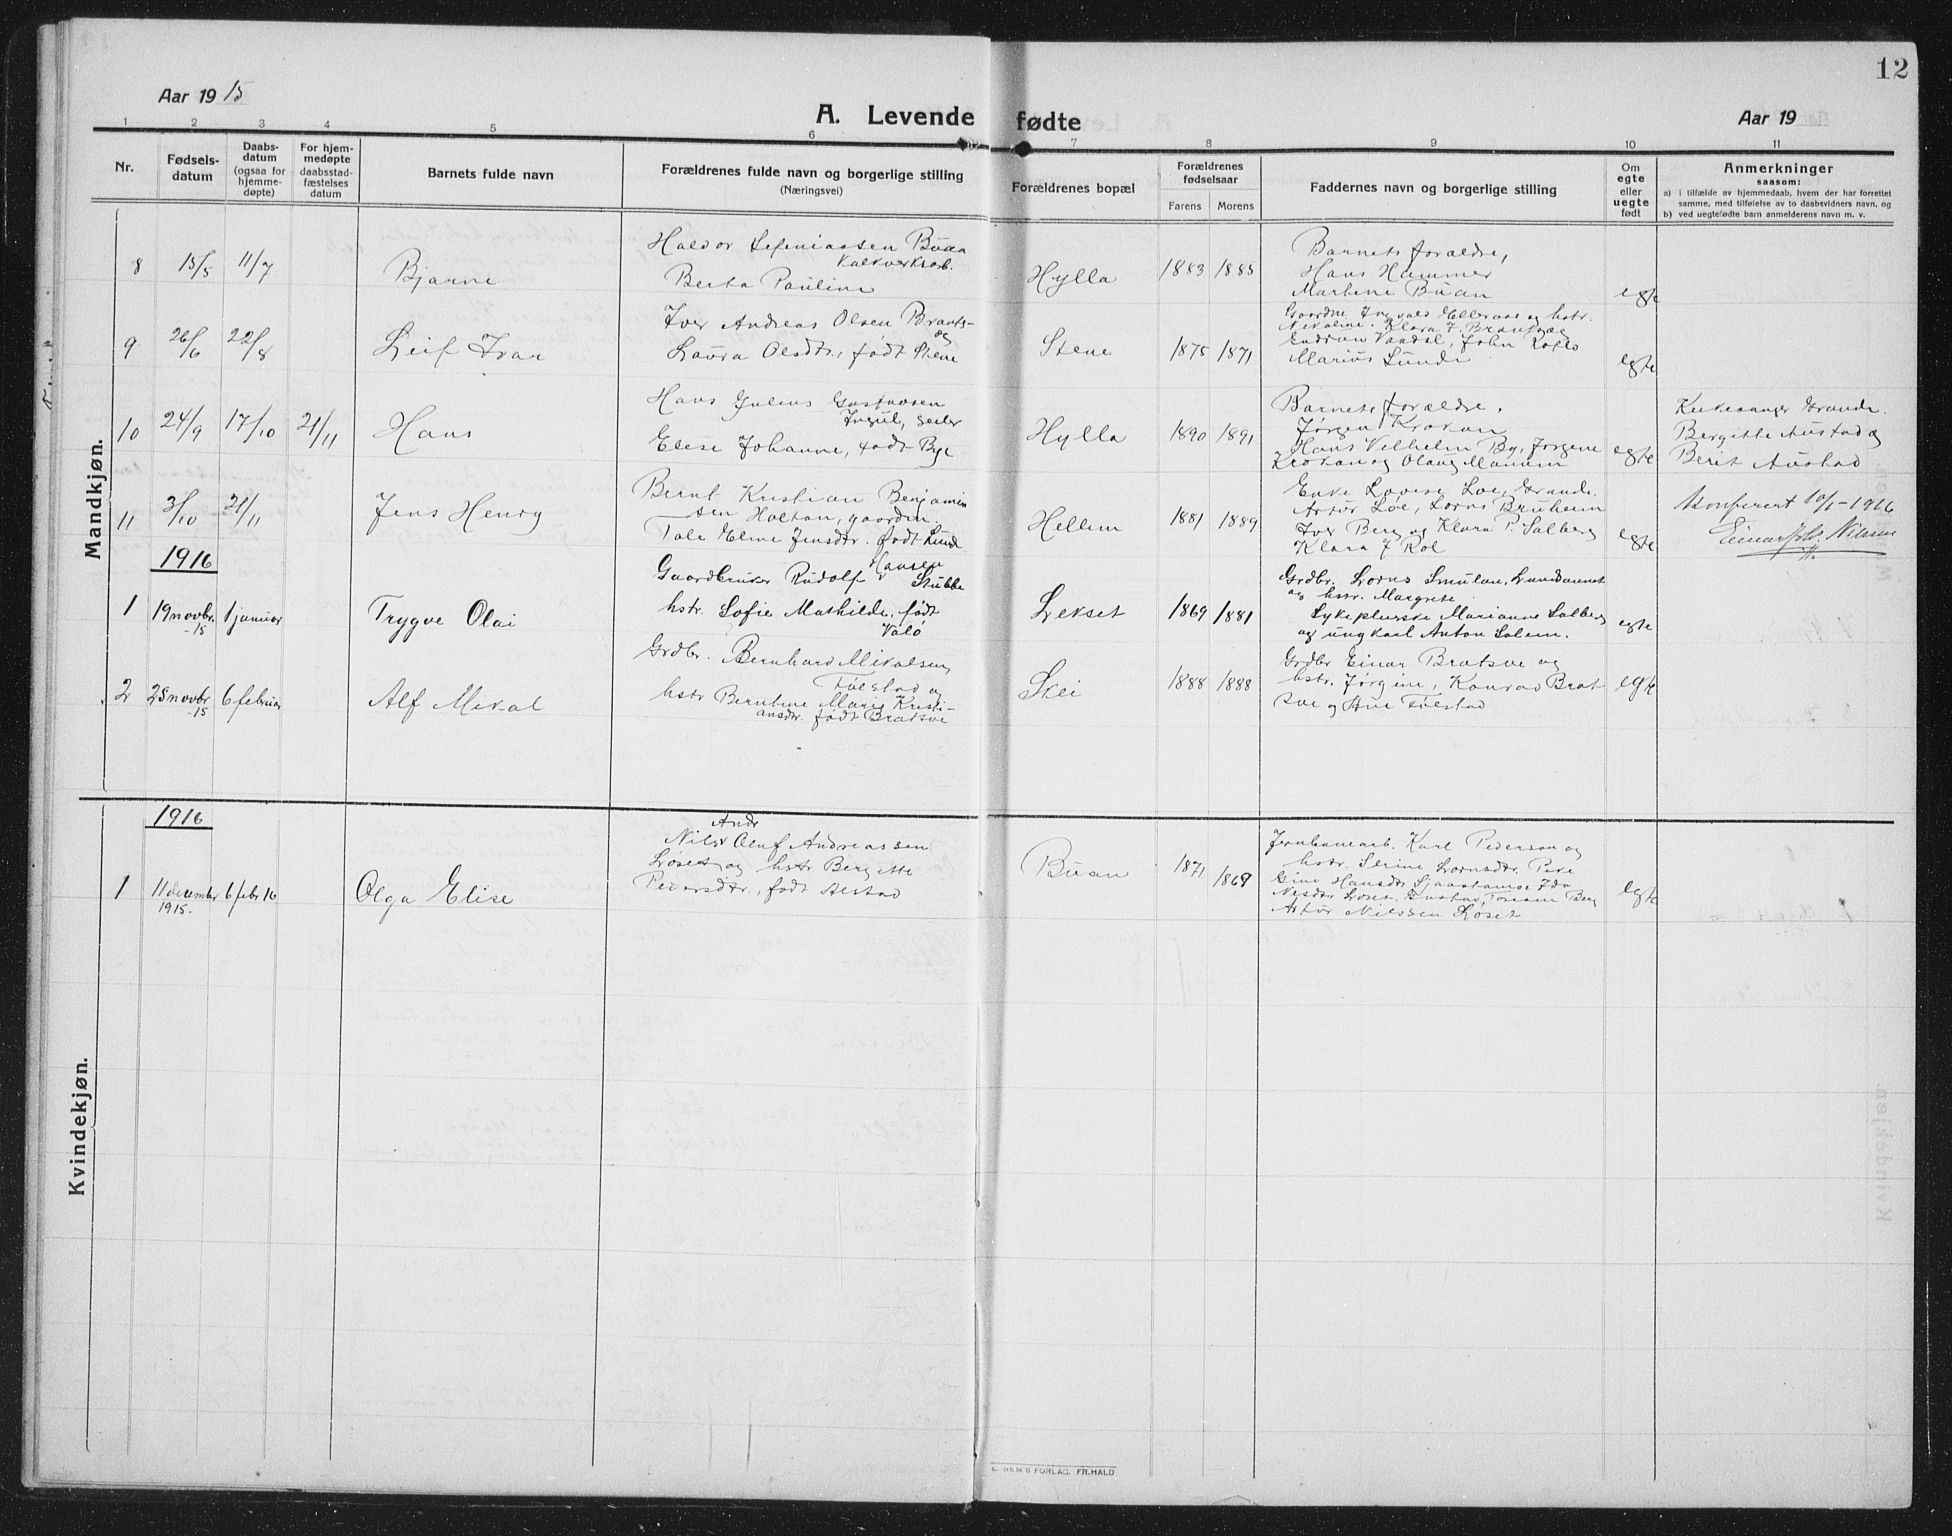 12
Aar 19 15
A. Levende fødte
Aar 19
1 2 3 4 5 6 7 8 9 10 11
Nr.
Fødsels-
datum
Daabs-
datum
(ogsaa for
hjemme-
døpte)
For hjem-
medøpte
daabsstad-
fæstelses
datum
Barnets fulde navn
Forældrenes fulde navn og borgerlige stilling
(Næringsvei)
Forældrenes bopæl
Forældrenes
fødselsaar
Farens Morens
Faddernes navn og borgerlige stilling
Om
egte
eller
uegte
født
Anmerkninger
saasom:
a) i tilfælde av hjemmedaab, hvem der har forrettet
samme, med tilføielse av to daabsvidners navn, og
b) ved uegtefødte barn anmelderens navn m. v.
Mandkjøn.
8 15/5 11/7 Bjarne
Haldor Buan
Kalkverksarb.
Berta Pauline
Hylla 1883 1885
Barnets forældre,
Hans Hammer
Martene Buan
egte
9 26/6 22/8 Leif Ivar
Iver Andreas Olsen Bravts-
og
Laura Olsdtr., født Stene
Stene 1875 1871
Gaardm. Ingvald Elleraas og hstr.
Nikoline. Klara J.
John
Marius Lunde
egte
10 24/9 17/10 21/11 Hans
Hans Julius Gustavsen
Ingul,
Elise Johanne, født Bye
Hylla 1890 1891
Barnets forældre.
Jørgen Krokan
Hans Vilhelm By, Jørgine
Krokan og Olaug
egte
Kirkesanger Grande.
Bergitte Austad og
Berit Austad
11 3/10 21/11 Jens Henry
Bernt Kristian Benjamin
sen Holtan, gaardm.
Tale Eline Jensdtr. født Lund
Hellem 1881 1889
Enke Lovise Loe, Grande.
Artur Loe, Lorns Bruheim
Iver Berg og Klara P. Salberg
Klara J Rol
egte
Konferert 10/1-1916
Einar Nilssen
1916
1 19 novbr. -15 1 januar Trygve Olai
Gaardbruker Rudolf Hansen
Stubbe
hstr. Sofie Mathilde, født
Valø
Lekset 1869 1881
Grdbr. Lorns Smulan, Sandvannet
og hstr. Margrete.
Sykepleierske Marianne Salberg
og ungkarl Anton Salem.
egte
2 25 novbr -15 6 februar Alf Mikal
Grdbr. Bernhard Mikalsen
Følstad og
hstr Berntine Marie Kristi-
ansdtr. født Bratsve
Skei 1888 1888
Grdbr Einar Bratsve og
hstr. Jørgine, Konrad Brat
sve og Ane Følstad
egte
Kvindekjøn.
1916
1 11 december 1915. 6 febr 16 Olga Elise
Andr
Nils Oluf Andreassen
Løset og hstr Bergitte
Petersdtr., født Alstad
Buan 1871 1869
Jernbanearb. Karl Pederson og
hstr. Serine Lornsdtr.
Gina Hansdtr Ida
Nilsdtr Løset, Gustav Berg
Artur Nilssen Løset
egte
FORLAG. FR. HALD